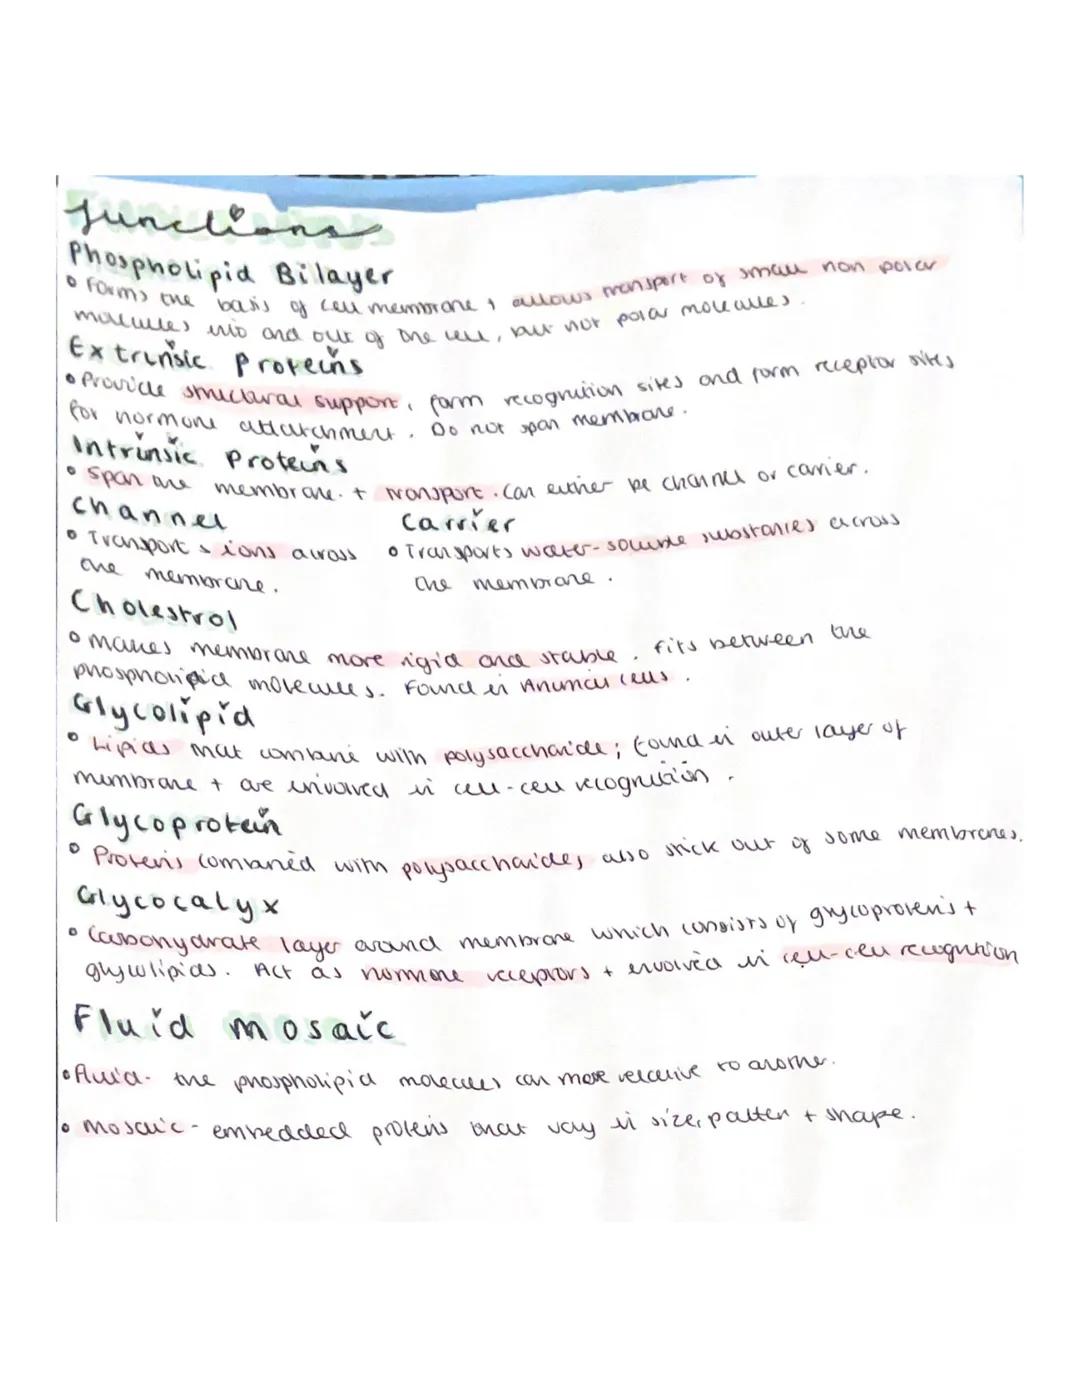 Functions
Phospholipid Bilayer
• Forms the basis of cell membrane, allows transport of small non polar
molecules into and out of the cell, but not polar molecules.
Extrinsic Proteins
• Provide structural support, form recognition sites and form receptor sites
for hormone attatchment. Do not span membrane.
Intrinsic Proteins
• Span the membrane. + transport. Can either be channel or carrier.
Channel Carrier
• Transports ions across • Transports water-soluble substances across
the membrane. the membrane.
Cholestrol
• Makes membrane more rigid and stable. Fits between the
phospholipid molecules. Found in Animal cells.
Glycolipid
• Lipids that combine with polysaccharide; found in outer layer of
membrane + are involved in cell-cell recognition.
Glycoprotein
• Proteins combined with polysaccharides, also stick out of some membranes.
Glycocalyx
• Carbohydrate layer around membrane which consists of glycoproteins +
glycolipids. Act as hormone receptors + involved in cell-cell recognition
Fluid mosaic
• Fluid- the phospholipid molecules can move relative to another.
• mosaic - embedded proteins that vary in size, patten + shape.